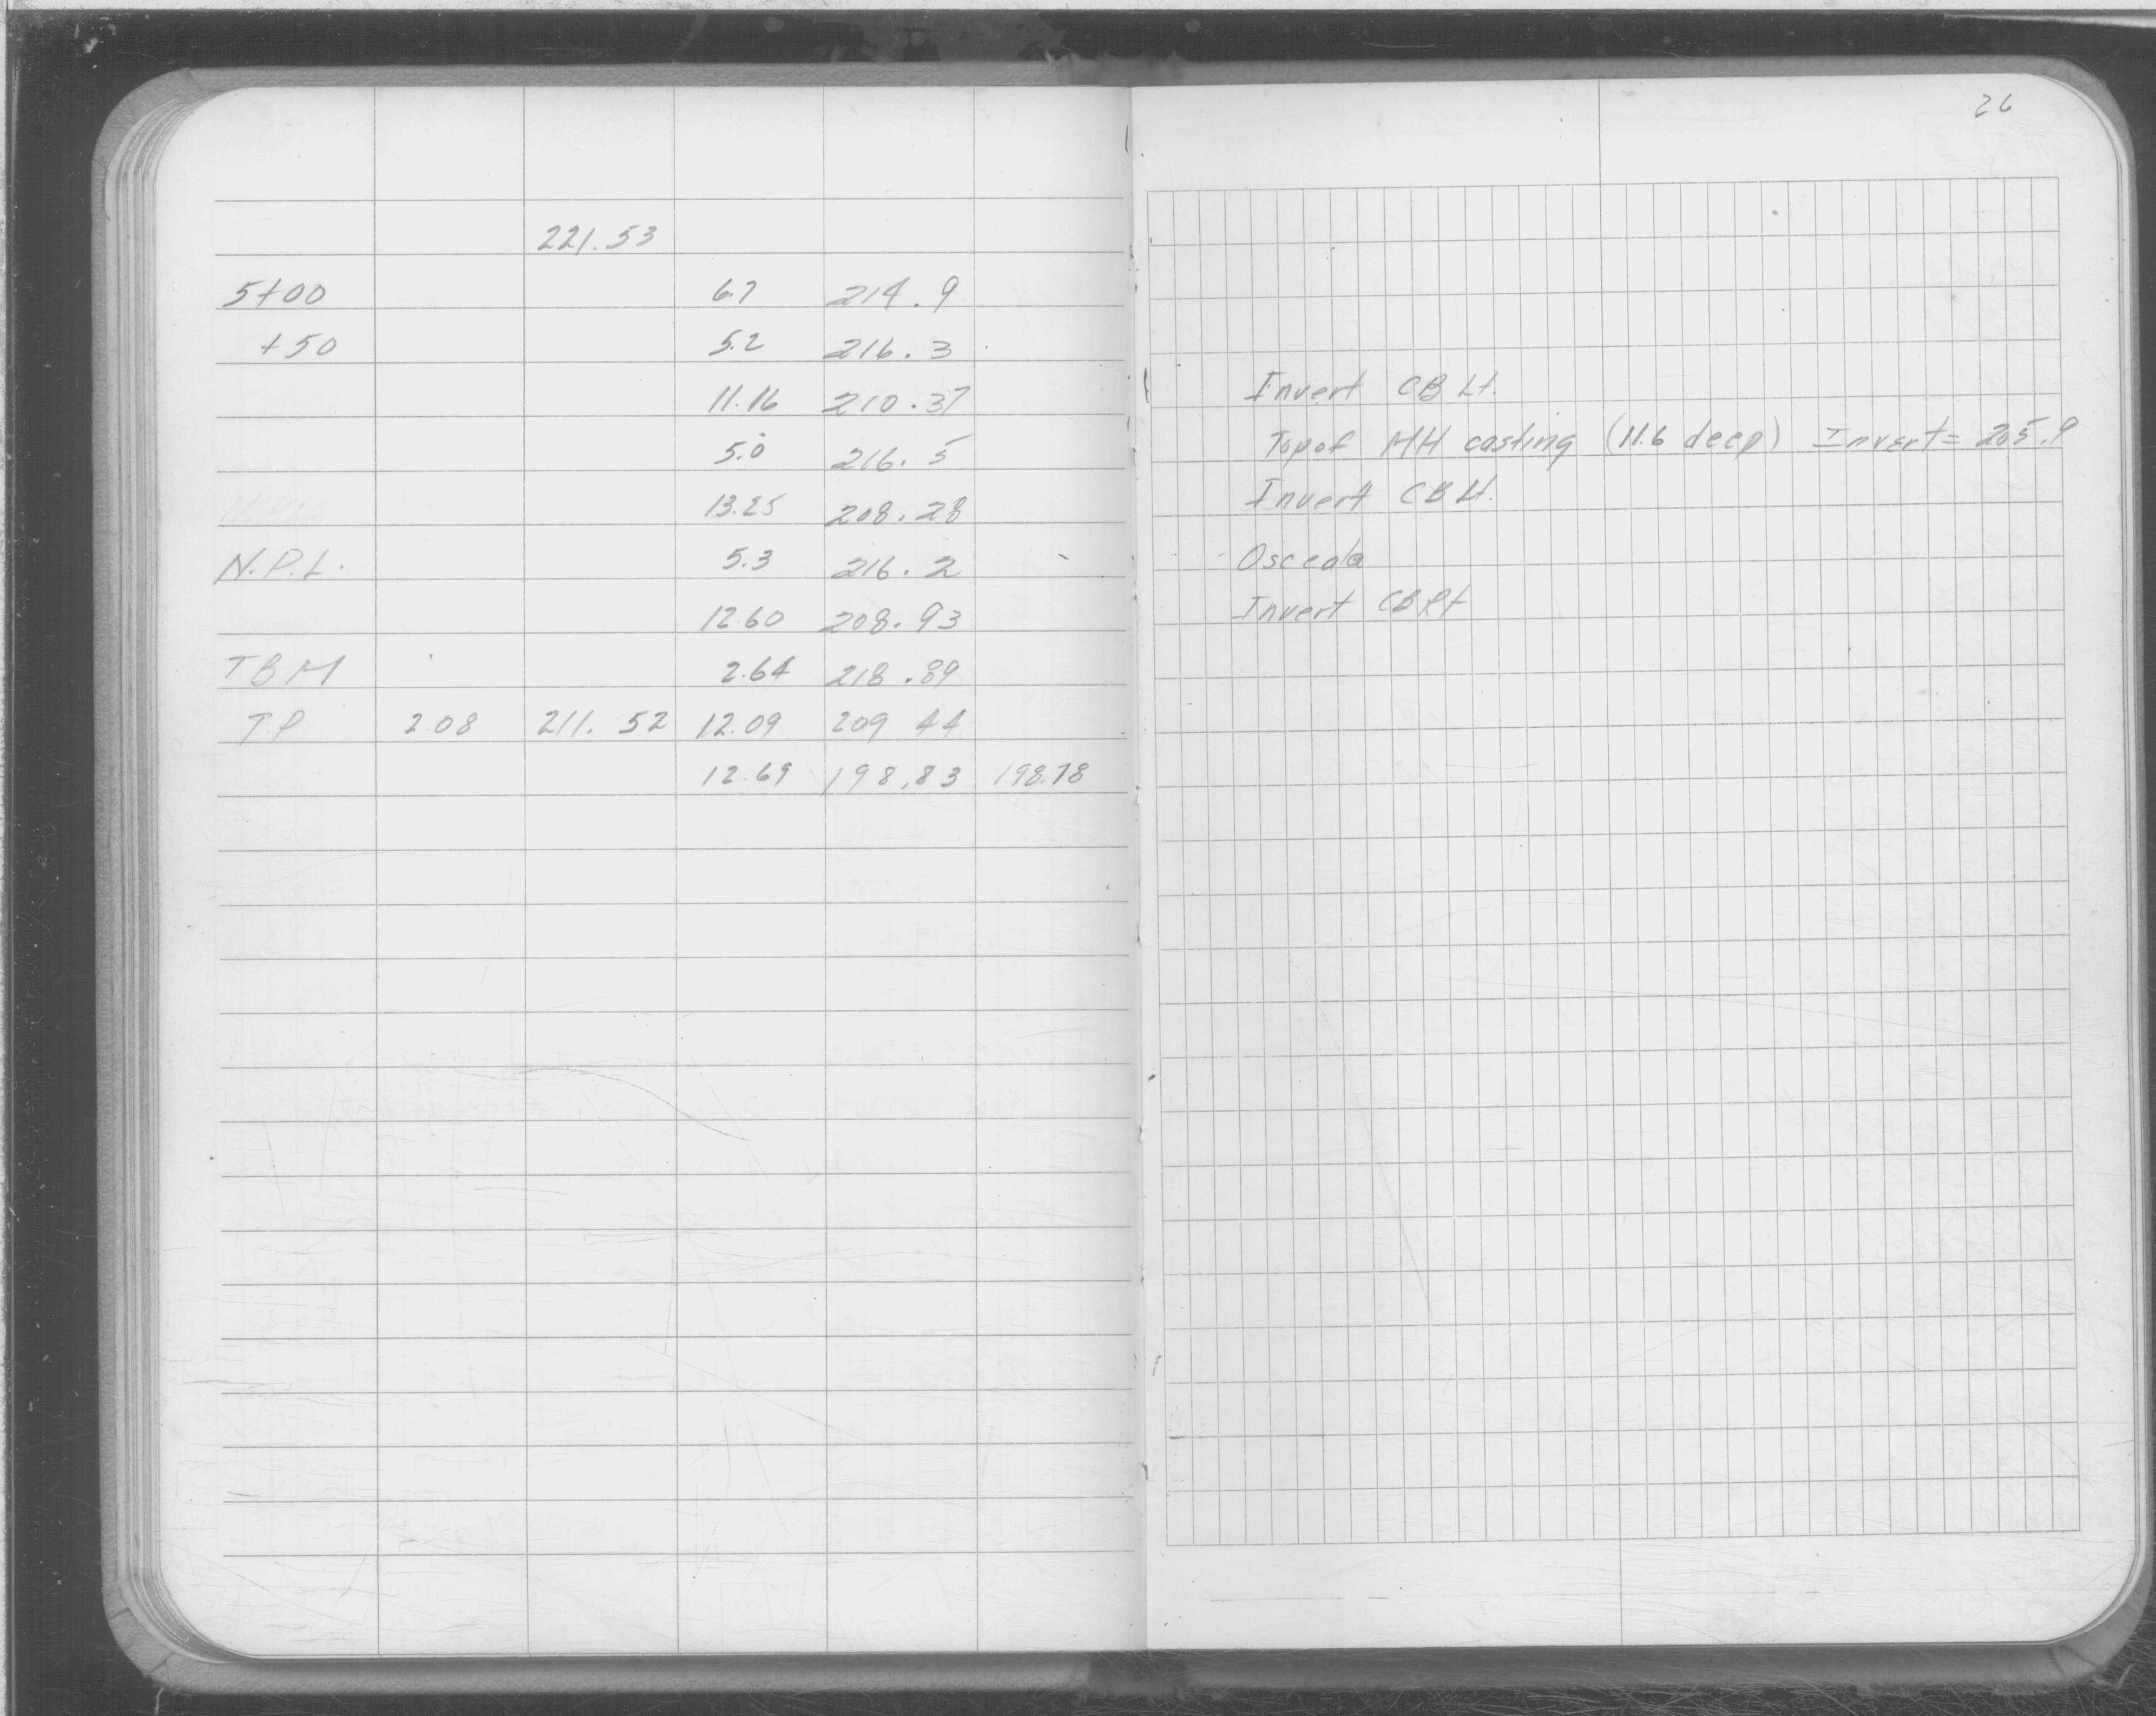 26
221.53
5+00 6.7 214.9
+50 5.2 216.3
11.16 210.37 Invert CB Lt.
5.0 216.5 Top of MH casting (11.6 deep) Invert = 205.9
13.25 208.28 Invert CB Lt.
N.P.L. 5.3 216.2 Osceola
12.60 208.93 Invert CB Rt
TBM 2.64 218.89
TP 2.08 211.52 12.09 209.44
12.69 198.83 198.78